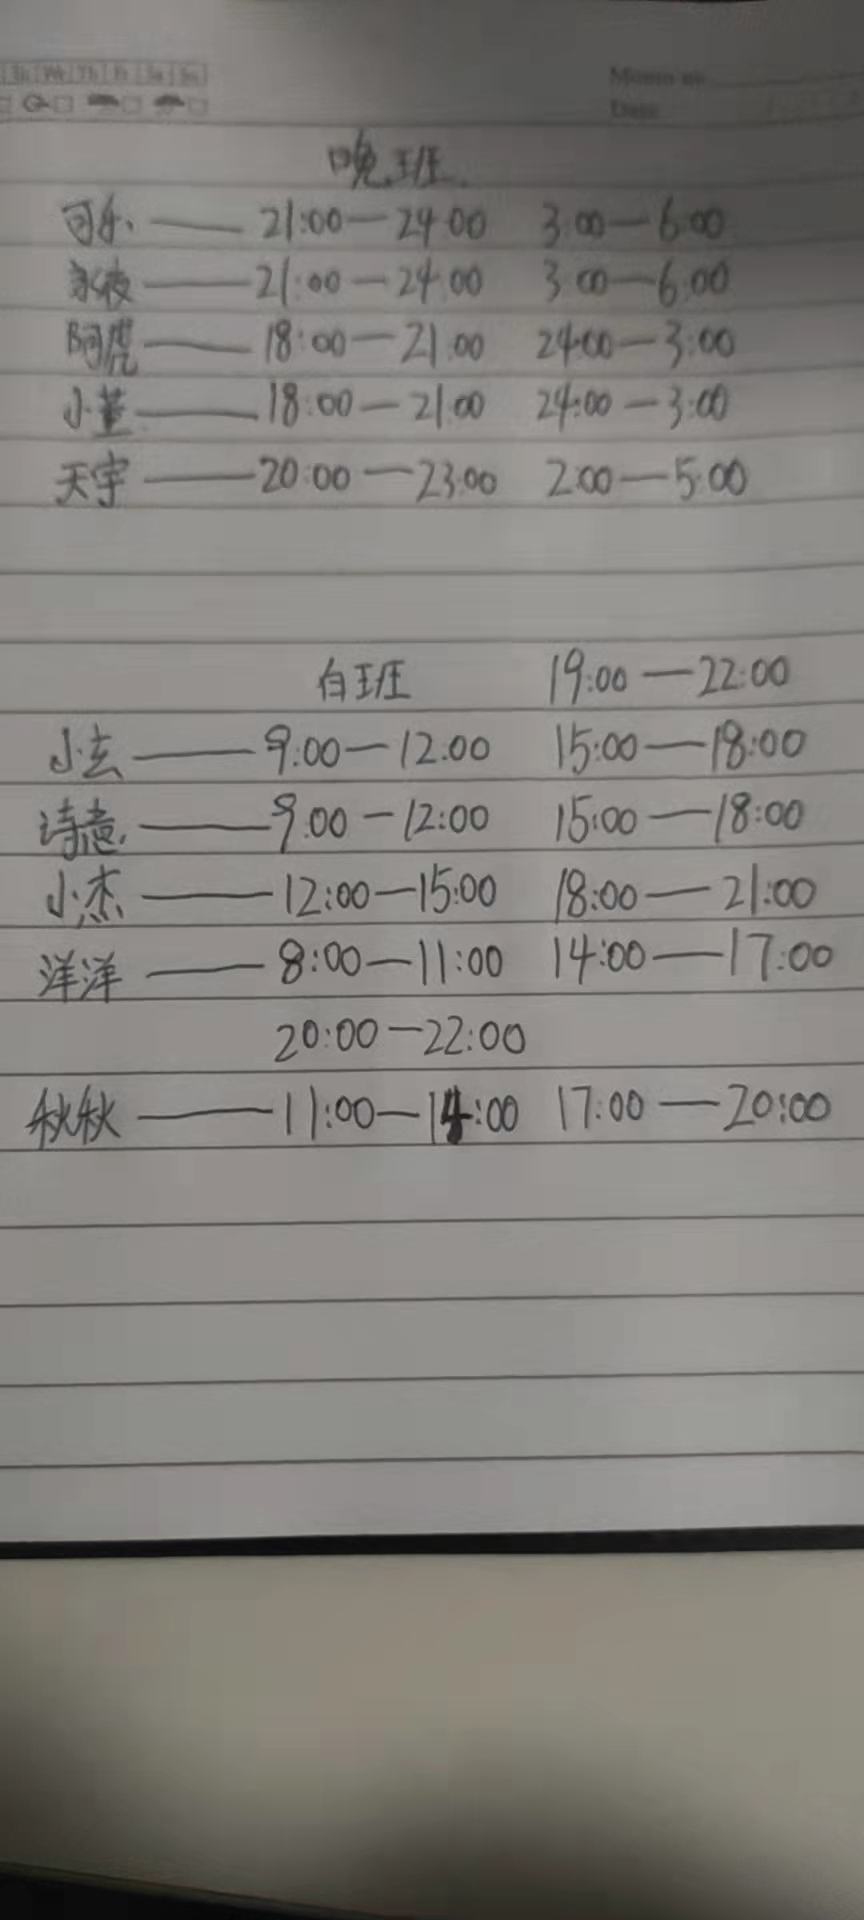 Tu We Th Fr Sa Su
Memo no.
Date
晚班
可乐 —— 21:00—24:00 3:00—6:00
—— 21:00—24:00 3:00—6:00
阿虎 —— 18:00—21:00 24:00—3:00
小董 —— 18:00—21:00 24:00—3:00
天宇 —— 20:00—23:00 2:00—5:00
白班 19:00—22:00
小玄 —— 9:00—12:00 15:00—18:00
诗意 —— 9:00—12:00 15:00—18:00
小杰 —— 12:00—15:00 18:00—21:00
洋洋 —— 8:00—11:00 14:00—17:00
20:00—22:00
秋秋 —— 11:00—14:00 17:00—20:00